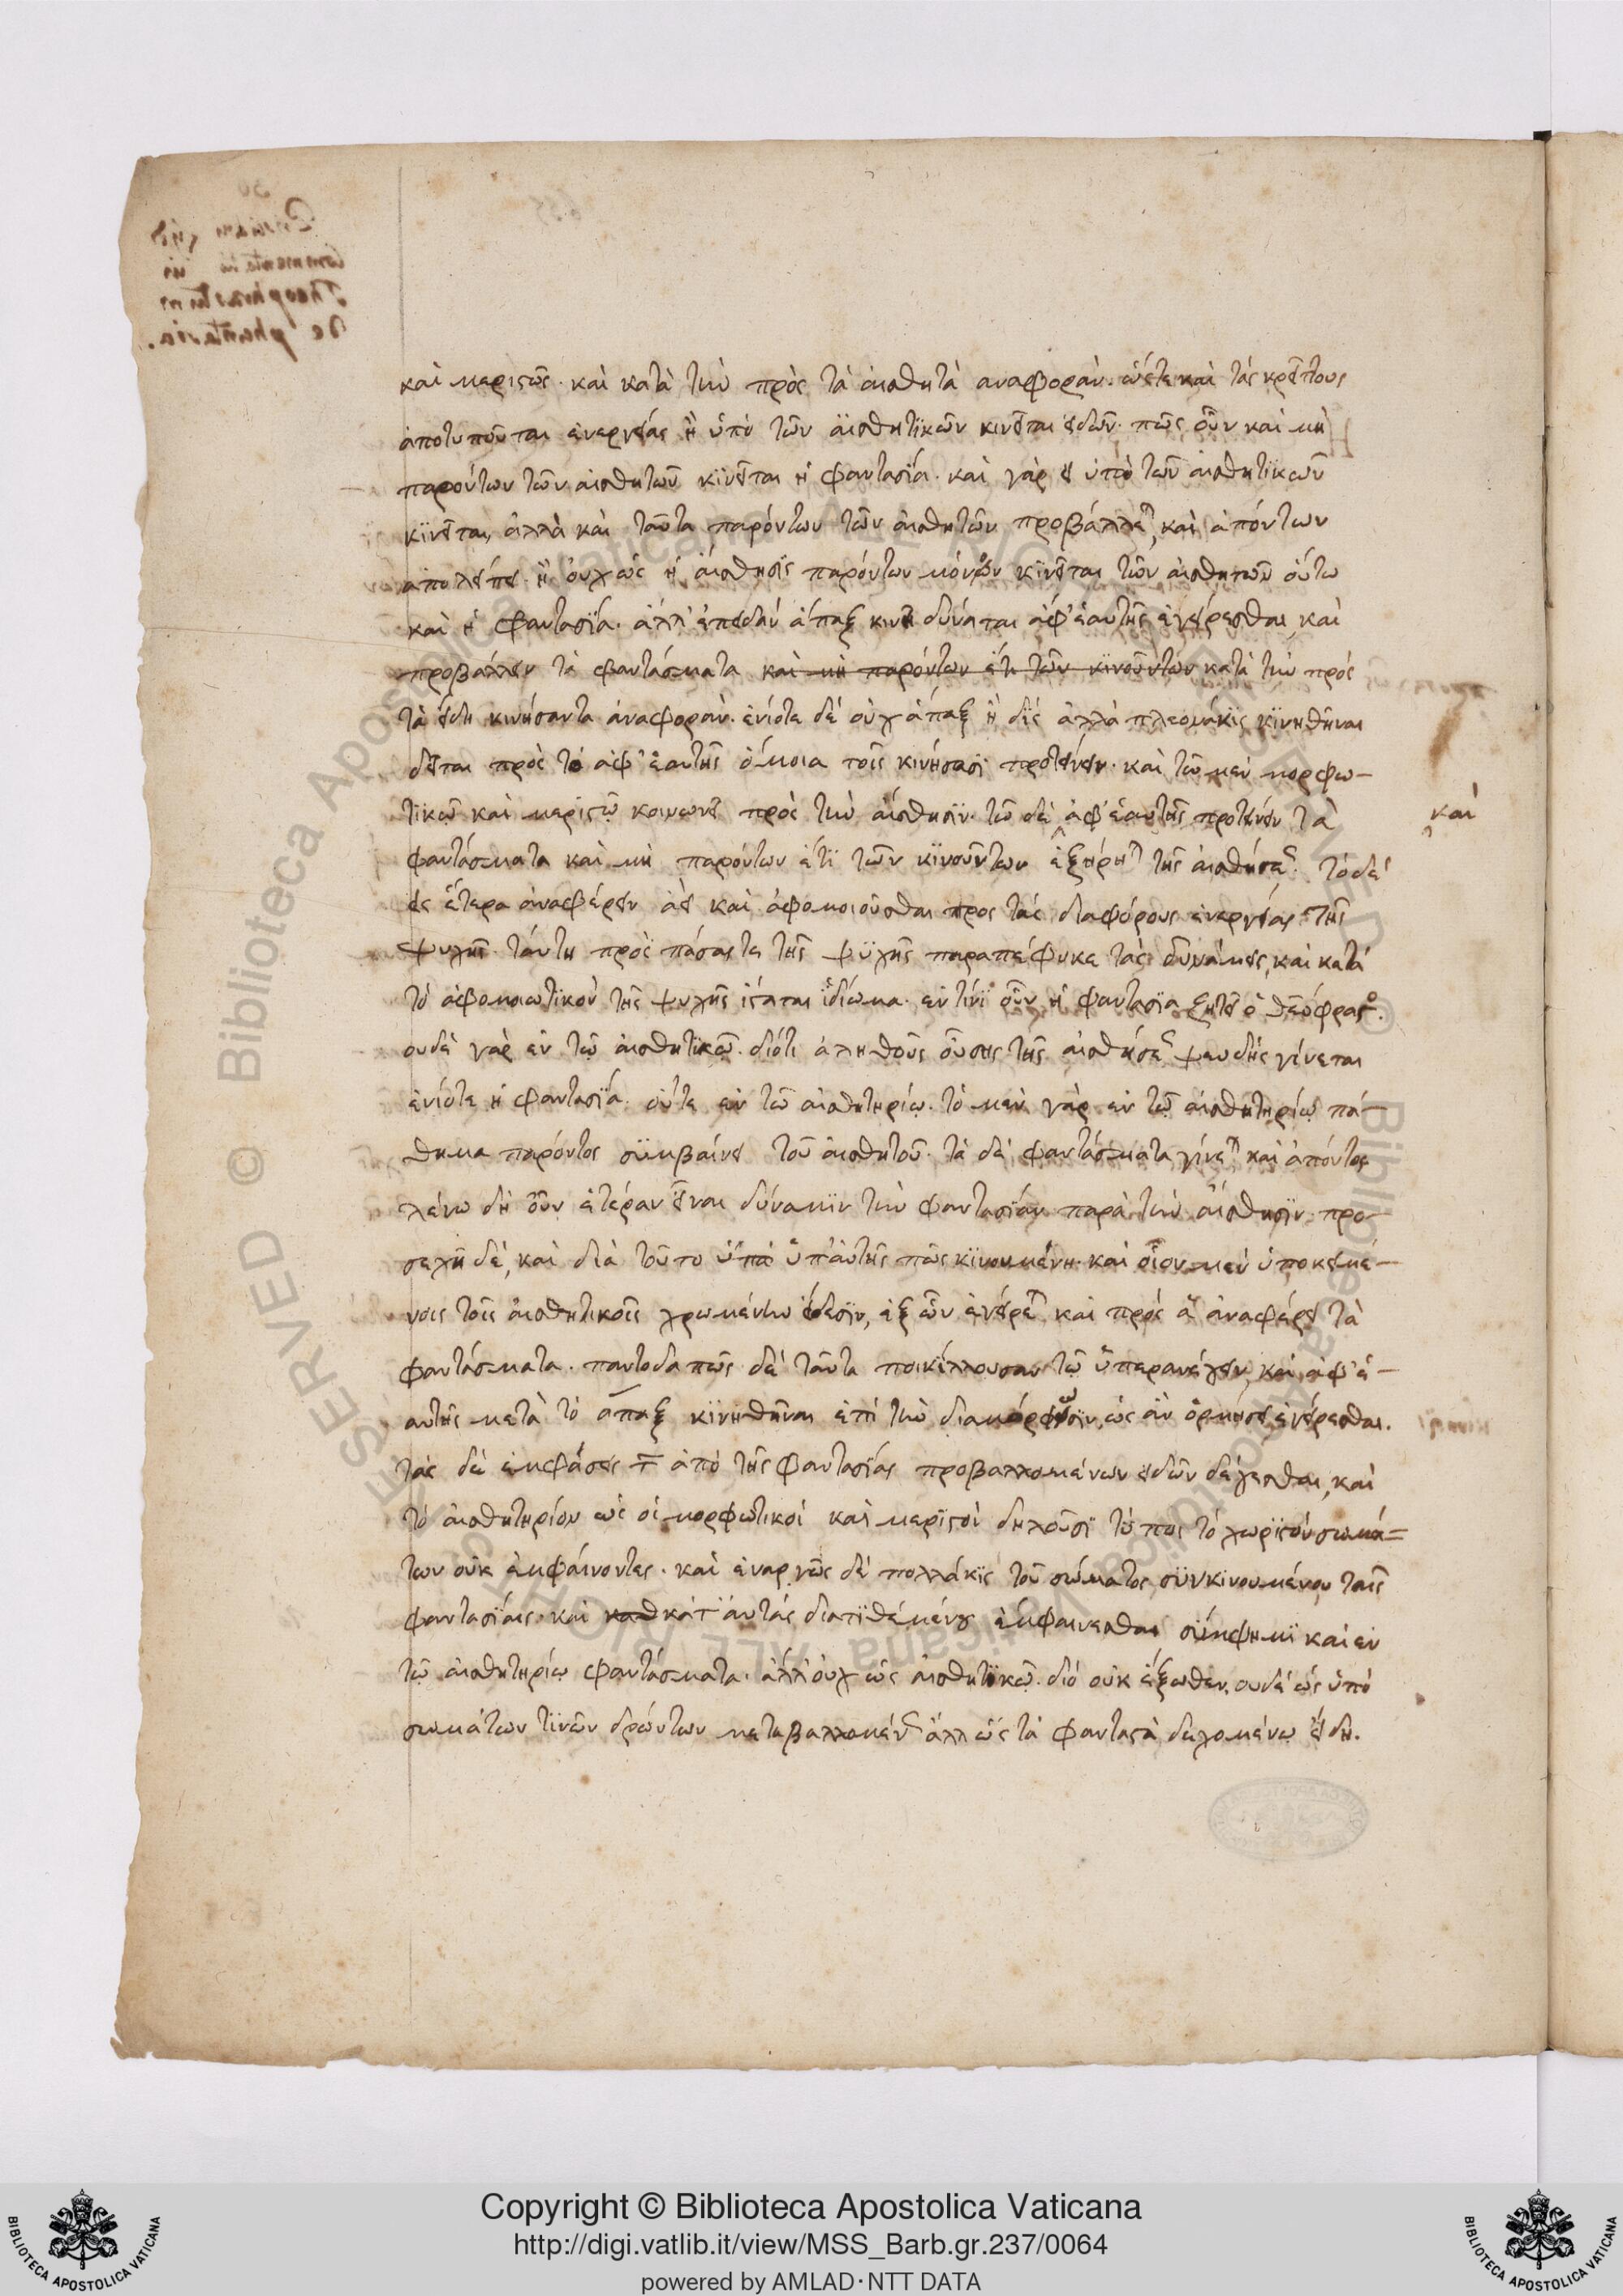 καὶ μεριστῶς. καὶ κατὰ τὴν πρὸς τὰ αἰσθητὰ αναφοράν. ὥστε καὶ τὰς κρείττους
ἀποτυποῦται ἐνεργείας ἢ ὑπὸ τῶν αἰσθητικῶν κινεῖται εἰδῶν. πῶς οὖν καὶ μὴ
παρόντων τῶν αἰσθητῶν κινεῖται ἡ φαντασία. καὶ γὰρ εἰ ὑπὸ τῶν αἰσθητικῶν
κινεῖται, ἀλλὰ καὶ ταῦτα παρόντων τῶν αἰσθητῶν προβάλλεται, καὶ ἀπόντων
απολείπει. ἢ οὐχ ὡς ἡ αἴσθησις παρόντων μόνον κινεῖται τῶν αἰσθητῶν οὕτω
καὶ ἡ φαντασία. ἀλλ' ἐπειδὰν ἅπαξ κινηθῇ δύναται ἀφ' ἑαυτῆς ἐγείρεσθαι, καὶ
προβάλλειν τὰ φαντάσματα καὶ μὴ παρόντων ἔτι τῶν κινούντων κατὰ τὴν πρὸς
τὰ εἴδη κινήσαντα ἀναφοράν. ἐνίοτε δὲ οὐχ ἅπαξ ἢ δὶς ἀλλὰ πλεονάκις κινηθῆναι
δεῖται πρὸς τὸ ἀφ' ἑαυτῆς ὅμοια τοῖς κινήσασι προτείνειν. καὶ τῷ μὲν μορφω-
τικῷ καὶ μεριστῷ κοινωνεῖ πρὸς τὴν αἴσθησιν. τῷ δὲ ἀφ' ἑαυτῆς προτείνειν τὰ
καὶ
φαντάσματα καὶ μὴ παρόντων ἔτι τῶν κινούντων ἐξῄρηται τῆς αἰσθήσεως. τὸ δὲ
εἰς ἕτερα ἀναφέρειν ἀεὶ καὶ ἀφομοιοῦσθαι προς τὰς διαφόρους ἐνεργείας τῆς
ψυχῆς ταύτῃ πρὸς πάσας τε τῆς ψυχῆς παραπέφυκε τὰς δυνάμεις, καὶ κατὰ
τὸ ἀφομοιωτικὸν τῆς ψυχῆς ἵσταται ἰδίωμα. ἐν τίνι οὖν ἡ φαντασία ζητεῖ ὁ θεόφραστος.
ουδὲ γὰρ ἐν τῷ αἰσθητικῷ. διότι ἀληθοῦς οὔσης τῆς αἰσθήσεως ψευδὴς γίνεται
ἐνίοτε ἡ φαντασία. οὔτε ἐν τῷ αἰσθητηρίῳ. τὸ μὲν γὰρ ἐν τῷ αἰσθητηρίῳ πά-
θημα παρόντος συμβαίνει τοῦ αἰσθητοῦ. τὰ δὲ φαντάσματα γίνεται καὶ ἀπόντος
λέγω δὴ οὖν ἑτέραν εἶναι δύναμιν τὴν φαντασίαν παρὰ τὴν αἴσθησιν. προ-
σεχῆ δὲ, καὶ διὰ τοῦτο ὑπὸ ὑπ' αὐτῆς πως κινουμένη. καὶ οἷον μὲν ὑποκειμέ-
νοις τοῖς αἰσθητικοῖς χρωμένην εἴδεσιν, ἐξ ὧν ἐγείρεται καὶ πρὸς ἃ ἀναφέρει τὰ
φαντάσματα. παντοδαπῶς δὲ ταῦτα ποικίλλουσαν τῷ ὑπερανέχειν, καὶ ἀφ' ἑ-
αυτῆς μετὰ τὸ ἅπαξ κινηθῆναι ἐπὶ τὴν διαμόρφωσιν, ὡς ἂν ὁρμήσῃ ἐγείρεσθαι.
τὰς δὲ ἐμφάσεις τῶν ἀπὸ τῆς φαντασίας προβαλλομένων εἰδῶν δέχεσθαι, καὶ
τὸ αἰσθητήριον ὡς οἱ μορφωτικοὶ καὶ μεριστοὶ δηλοῦσι τύποι τὸ χωριστὸν σωμά-
των οὐκ ἐμφαίνοντες. καὶ ἐναργῶς δὲ πολλάκις τοῦ σώματος συγκινουμένου ταῖς
φαντασίαις. καὶ καθ κατ' αὐτὰς διατιθεμένου ἐμφαίνεσθαι σύμφημι καὶ ἐν
τῷ αἰσθητηρίῳ φαντάσματα. ἀλλ' οὐχ ὡς αἰσθητικῷ. διὸ οὐκ ἔξωθεν, ουδὲ ὡς ὑπὸ
σωμάτων τινῶν δρώντων μεταβαλλομένως ἀλλ' ὡς τὰ φανταστὰ δεχομένῳ εἴδη.
Copyright © Biblioteca Apostolica Vaticana
http://digi.vatlib.it/view/MSS_Barb.gr.237/0064
powered by AMLAD·NTT DATA